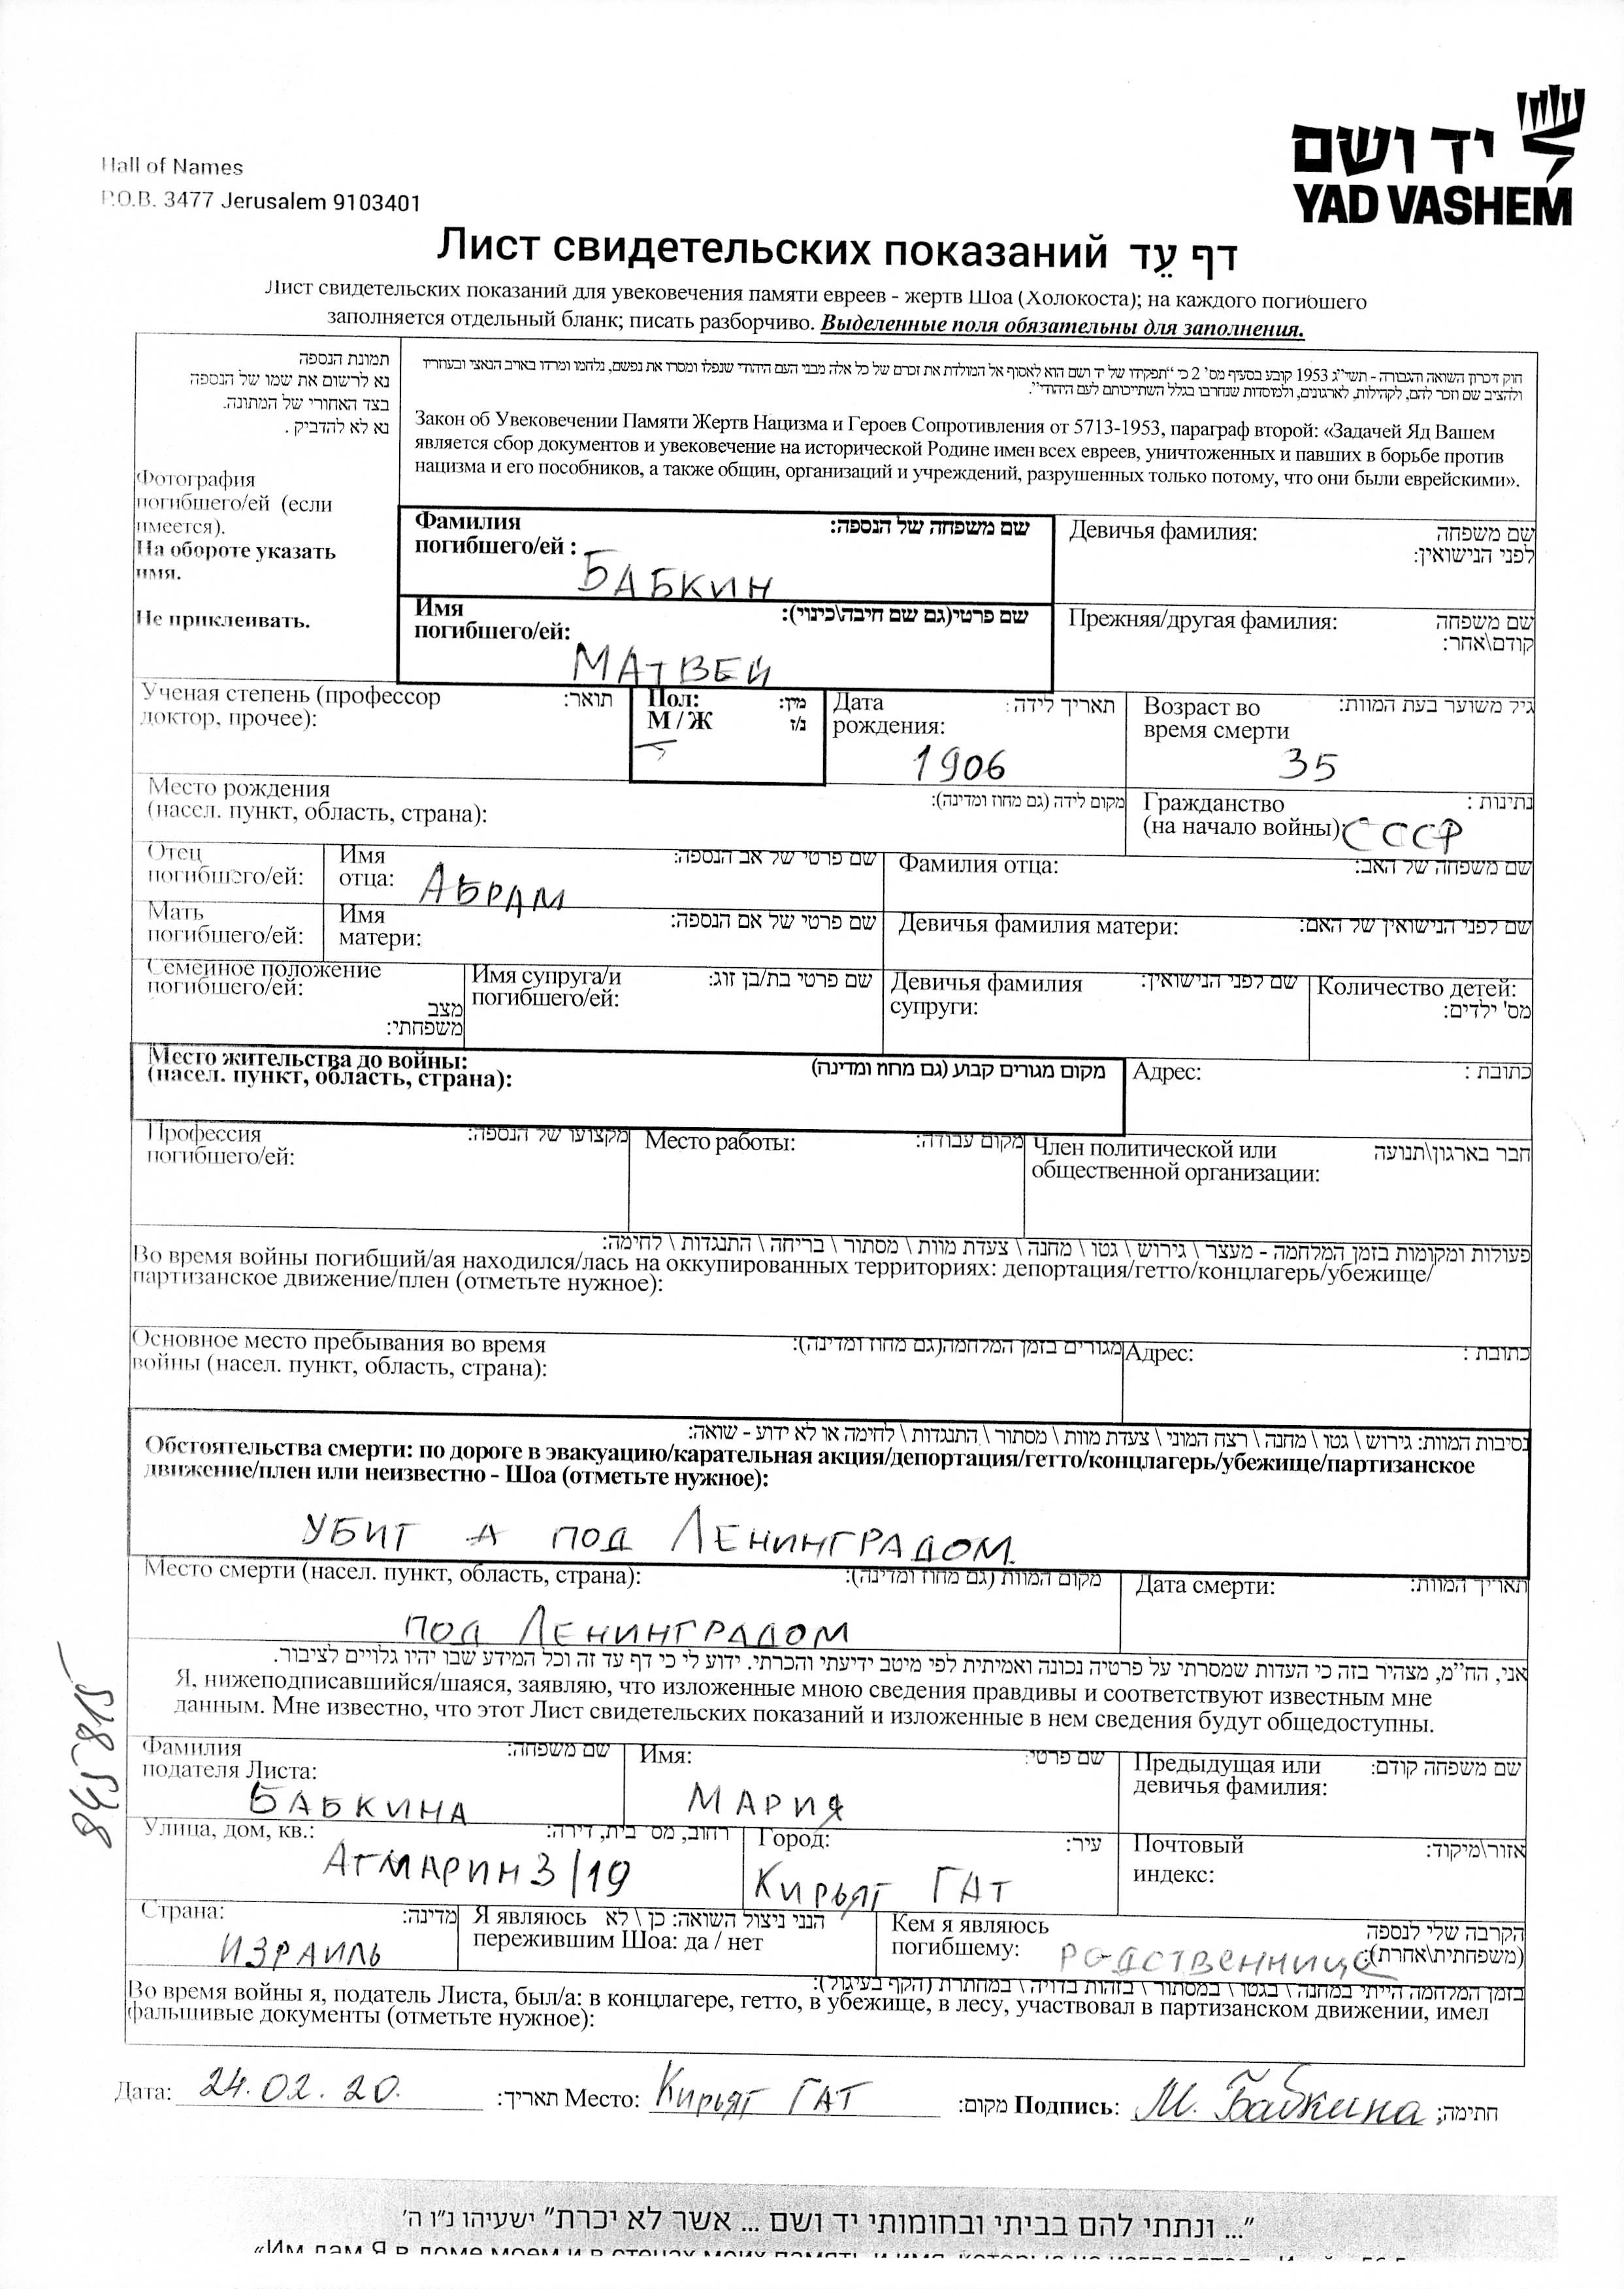 יד ושם
YAD VASHEM
Hall of Names
P.O.B. 3477 Jerusalem 9103401
Лист свидетельских показаний דף עֵד
Лист свидетельских показаний для увековечения памяти евреев - жертв Шоа (Холокоста); на каждого погибшего
заполняется отдельный бланк; писать разборчиво. Выделенные поля обязательны для заполнения.
תמונת הנספה
נא לרשום את שמו של הנספה
בצד האחורי של המתונה.
נא לא להדביק .
Фотография
погибшего/ей (если
имеется).
На обороте указать
имя.
Не приклеивать.
חוק זיכרון השואה והגבורה - תשי"ג 1953 קובע בסעיף מס' 2 כי "תפקידו של יד ושם הוא לאסוף אל המולדת את זכרם של כל אלה מבני העם היהודי שנפלו ומסרו את נפשם, נלחמו ומרדו באויב הנאצי ובעוזריו
ולהציב שם וזכר להם, לקהילות, לארגונים, ולמוסדות שנחרבו בגלל השתייכותם לעם היהודי".
Закон об Увековечении Памяти Жертв Нацизма и Героев Сопротивления от 5713-1953, параграф второй: «Задачей Яд Вашем
является сбор документов и увековечение на исторической Родине имен всех евреев, уничтоженных и павших в борьбе против
нацизма и его пособников, а также общин, организаций и учреждений, разрушенных только потому, что они были еврейскими».
Фамилия погибшего/ей : שם משפחה של הנספה:
БАБКИН
Девичья фамилия: שם משפחה לפני הנישואין:
Имя погибшего/ей: שם פרטי(גם שם חיבה\כינוי):
МАТВЕЙ
Прежняя/другая фамилия: שם משפחה קודם\אחר:
Ученая степень (профессор доктор, прочее): תואר:
Пол: מין:
М / Ж נ/ז
Дата рождения: תאריך לידה :
1906
Возраст во время смерти גיל משוער בעת המוות:
35
Место рождения
(насел. пункт, область, страна): מקום לידה (גם מחוז ומדינה):
Гражданство (на начало войны): נתינות :
СССР
Отец погибшего/ей:
Имя отца: שם פרטי של אב הנספה:
АБРАМ
Фамилия отца: שם משפחה של האב:
Мать погибшего/ей:
Имя матери: שם פרטי של אם הנספה:
Девичья фамилия матери: שם לפני הנישואין של האם:
Семейное положение погибшего/ей: מצב משפחתי:
Имя супруга/и погибшего/ей: שם פרטי בת/בן זוג:
Девичья фамилия супруги: שם לפני הנישואין:
Количество детей: מס' ילדים:
Место жительства до войны:
(насел. пункт, область, страна): מקום מגורים קבוע (גם מחוז ומדינה)
Адрес: כתובת :
Профессия погибшего/ей: מקצועו של הנספה:
Место работы: מקום עבודה:
Член политической или общественной организации: חבר בארגון\תנועה
פעולות ומקומות בזמן המלחמה - מעצר \ גירוש \ גטו \ מחנה \ צעדת מוות \ מסתור \ בריחה \ התנגדות \ לחימה:
Во время войны погибший/ая находился/лась на оккупированных территориях: депортация/гетто/концлагерь/убежище/
партизанское движение/плен (отметьте нужное):
Основное место пребывания во время
войны (насел. пункт, область, страна): מגורים בזמן המלחמה(גם מחוז ומדינה):
Адрес: כתובת :
נסיבות המוות: גירוש \ גטו \ מחנה \ רצח המוני \ צעדת מוות \ מסתור \ התנגדות \ לחימה או לא ידוע - שואה:
Обстоятельства смерти: по дороге в эвакуацию/карательная акция/депортация/гетто/концлагерь/убежище/партизанское
движение/плен или неизвестно - Шоа (отметьте нужное):
УБИТ А ПОД ЛЕНИНГРАДОМ.
Место смерти (насел. пункт, область, страна): מקום המוות (גם מחוז ומדינה):
ПОД ЛЕНИНГРАДОМ
Дата смерти: תאריך המוות:
אני, הח"מ, מצהיר בזה כי העדות שמסרתי על פרטיה נכונה ואמיתית לפי מיטב ידיעתי והכרתי. ידוע לי כי דף עד זה וכל המידע שבו יהיו גלויים לציבור.
Я, нижеподписавшийся/шаяся, заявляю, что изложенные мною сведения правдивы и соответствуют известным мне
данным. Мне известно, что этот Лист свидетельских показаний и изложенные в нем сведения будут общедоступны.
Фамилия подателя Листа: שם משפחה:
БАБКИНА
Имя: שם פרטי:
МАРИЯ
Предыдущая или девичья фамилия: שם משפחה קודם:
Улица, дом, кв.: רחוב, מס' בית, דירה:
АГМАРИН 3/19
Город: עיר:
КИРЬЯТ ГАТ
Почтовый индекс: אזור\מיקוד:
Страна: מדינה:
ИЗРАИЛЬ
Я являюсь הנני ניצול השואה: כן \ לא
пережившим Шоа: да / нет
Кем я являюсь погибшему: הקרבה שלי לנספה (משפחתית\אחרת):
РОДСТВЕННИЦЕ
בזמן המלחמה הייתי במחנה \ בגטו \ במסתור \ בזהות בדויה \ במחתרת (הקף בעיגול):
Во время войны я, податель Листа, был/а: в концлагере, гетто, в убежище, в лесу, участвовал в партизанском движении, имел
фальшивые документы (отметьте нужное):
Дата: 24.02.20. תאריך: Место: КИРЬЯТ ГАТ מקום: Подпись: М. Бабкина חתימה;
"... ונתתי להם בביתי ובחומותי יד ושם ... אשר לא יכרת" ישעיהו נ"ו ה'
«Им дам Я в доме моем и в стенах моих память и имя, которые не